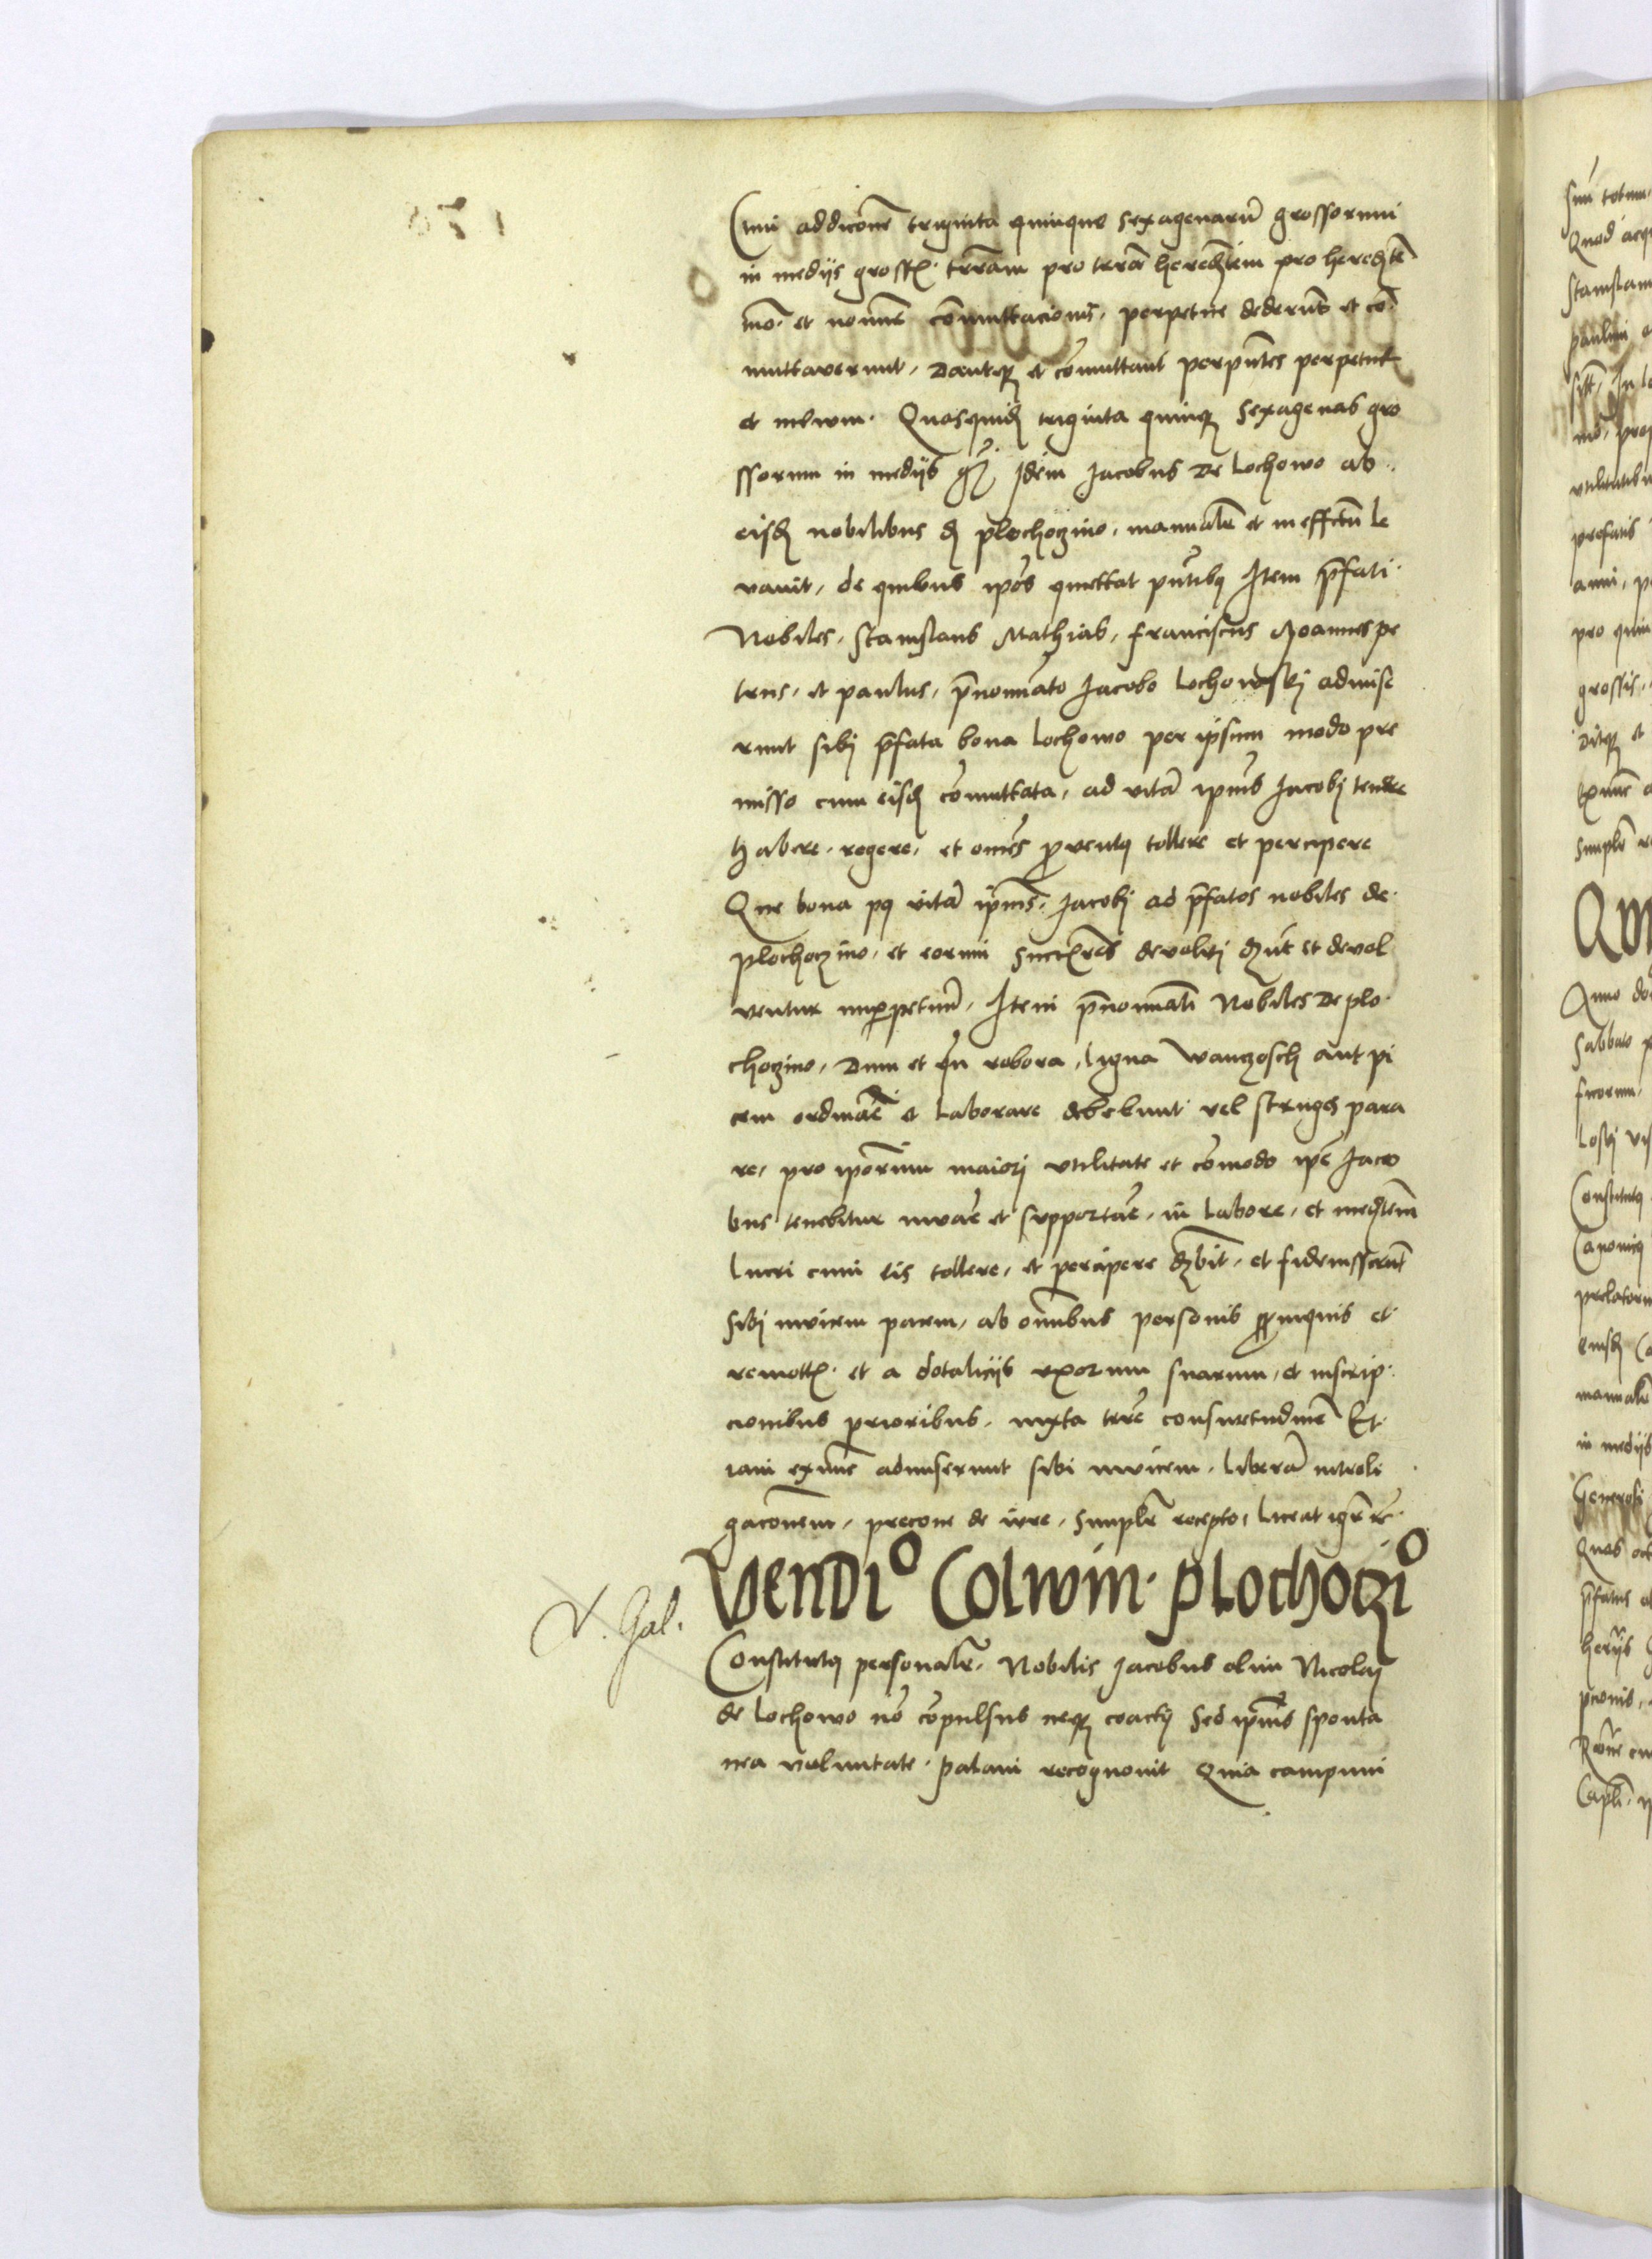 Cum addicōne triginta quinque sexagenarū grossorum
in medijs gross. terram pro terra heredtem pro heredtē
mō. et nomine cōmuttacionis, perpetue dederūt et cō
muttaverunt, Dantq et cōmuttant perpntes perpetue
et in ewm. Quasquid triginta quinq sexagenas gro
ssorum in medijs gr Idem Jacobus de Lochowo ab
eisd nobilibus d plochoczino, manualr et in effctū le
vauit, de quibus ipōs quittat pntibq Item p̄fati
Nobiles, Stanislaus Mathias, Franciscus Joannes pe
trus, et paulus, p̄nominato Jacobo Lochowskj admise
runt sibj p̄fata bona Lochowo per ipsum modo pre
misso cum eisd cōmuttata, ad vitā ipius Jacobj tenere
habere, regere, et omes proventq tollere et percipere
Que bona pq vitā ipius, Jacobj ad p̄fatos nobiles de
plochoczino, et eorum successores devolvj dznt et devol
ventur inperpetuū, Item p̄nominati Nobiles De plo
choczino, Dum et qn robora, Ligna wanczosch aut pi
cem ordinare et Laborare debebunt vel struges para
re, pro ipōrum maiorj vtilitate et cōmodo ipē Jaco
bus tenebitur iuvare et supportare, in Labore, et medtem
Lucri cum eis tollere, et percipere dzbit, et fideiusserūt
sibj invicem pacem, ab omnibus personis propinquis et
remott. et a dotalicijs vxorum suarum, et inscrip
cionibus prioribus, iuxta terre consuetudinē Et
iam exnunc admiserunt sibi invicem, Liberā introli
gacōnem, precone de iure, simplr recepto, Liceat igr rc
Vendio Colwin. plochoczio
V. Gal.
Constitutq personalr, Nobilis Jacobus olim Nicolaj
de Lochowo nō cōpulsus neq coactq sed ipius sponta
nea voluntate, palam recognovit Quia campum